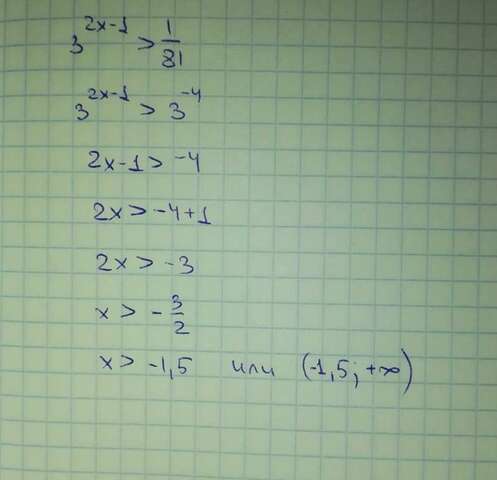 3^{2x-1} > \frac{1}{81}
3^{2x-1} > 3^{-4}
2x-1 > -4
2x > -4+1
2x > -3
x > -\frac{3}{2}
x > -1,5 или (-1,5; +∞)